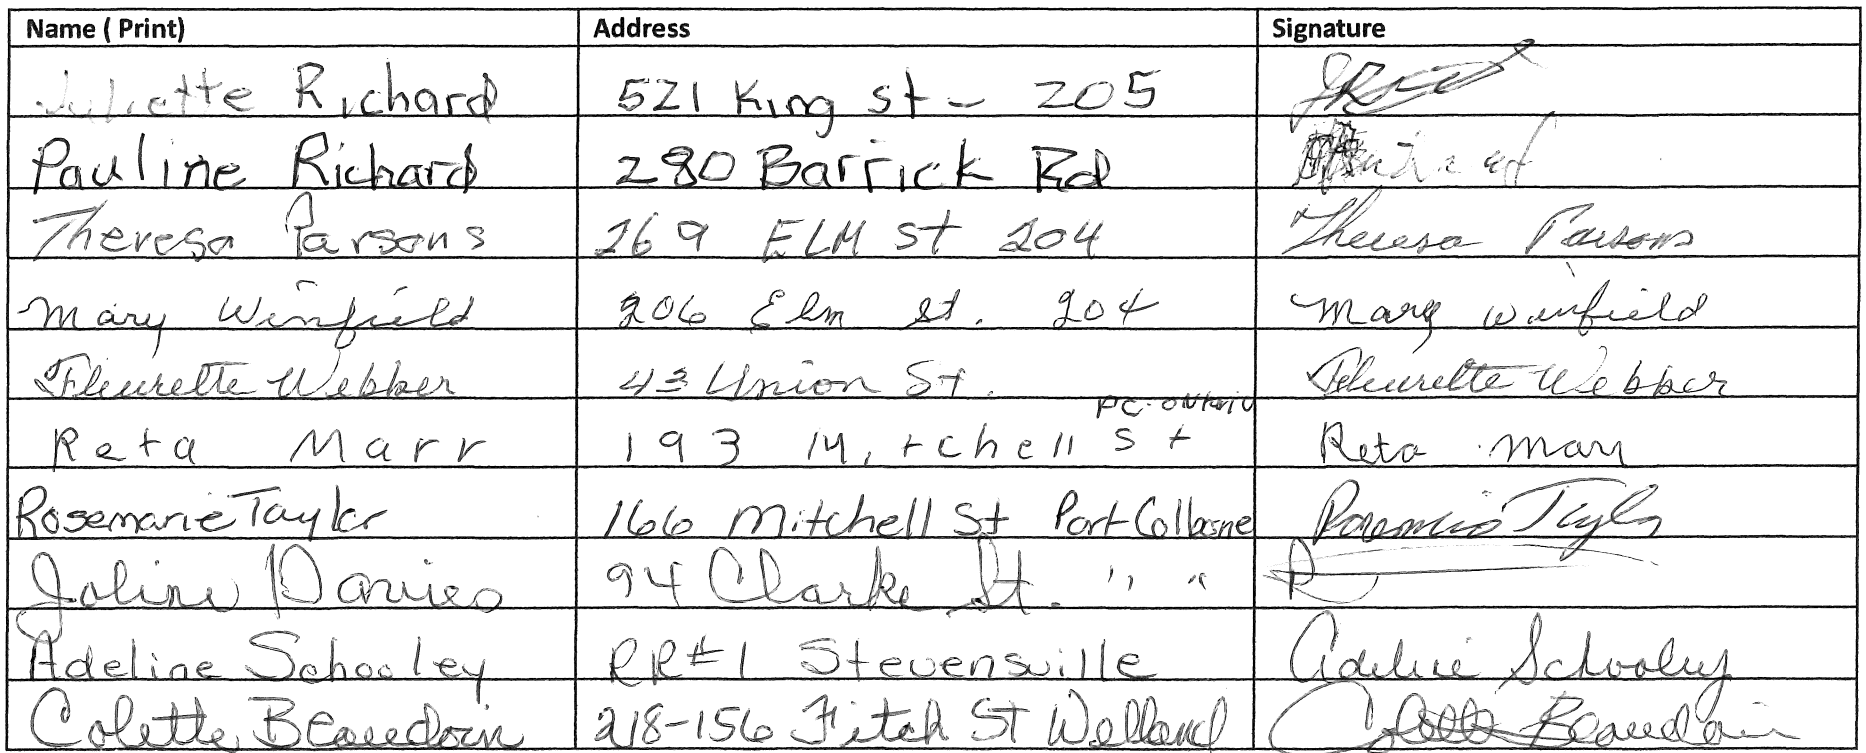 Name ( Print) Address Signature
Juliette Richard 521 King St - 205
Pauline Richard 280 Barrick Rd
Theresa Parsons 269 ELM St 204 Theresa Parsons
Mary Winfield 206 Elm St. 204 Mary Winfield
Fleurette Webber 43 Union St. Fleurette Webber
PC. ontario
Reta Marr 193 Mitchell St Reta Marr
Rosemarie Taylor 166 Mitchell St Port Colborne Rosemarie Taylor
Joline Davies 94 Clarke St. " "
Adeline Schooley RR#1 Stevensville Adeline Schooley
Colette Beaudoin 218-156 Fitch St Welland Colette Beaudoin